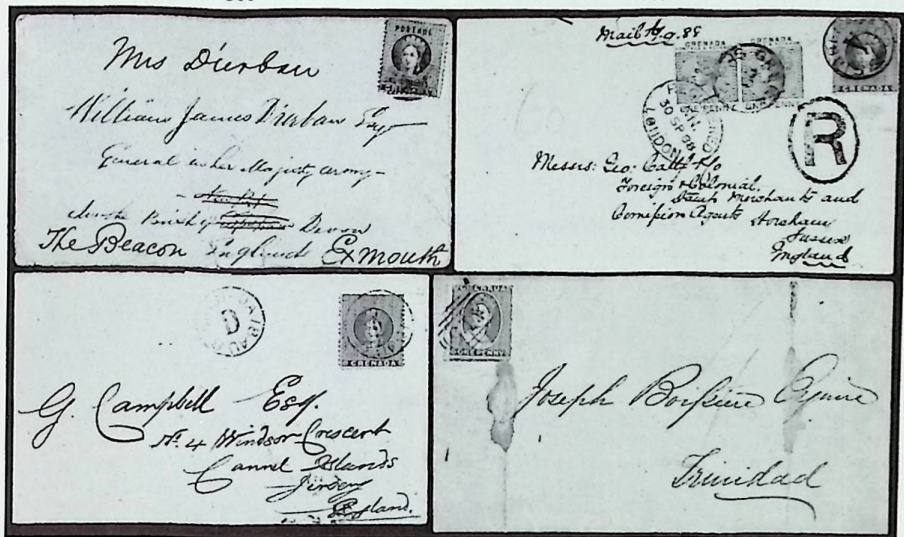 POSTAGE
Mrs Durban
William James Durban Esqr
General in her Majesty army
Devon
The Beacon England Exmouth
Mail 17.9.88
GRENADA GRENADA
ONE PENNY ONE PENNY
GRENADA
LONDON
30 SP 88
R
Messrs: Geo: Calf & Co
Foreign & Colonial,
Stamp Merchants and
Comission Agents Horsham
Sussex
England
D
GRENADA
G. Campbell Esq.
No. 4 Windsor Crescent
Cannel Islands
Jersey
England.
GRENADA
ONE PENNY
Joseph Esquire
Trinidad